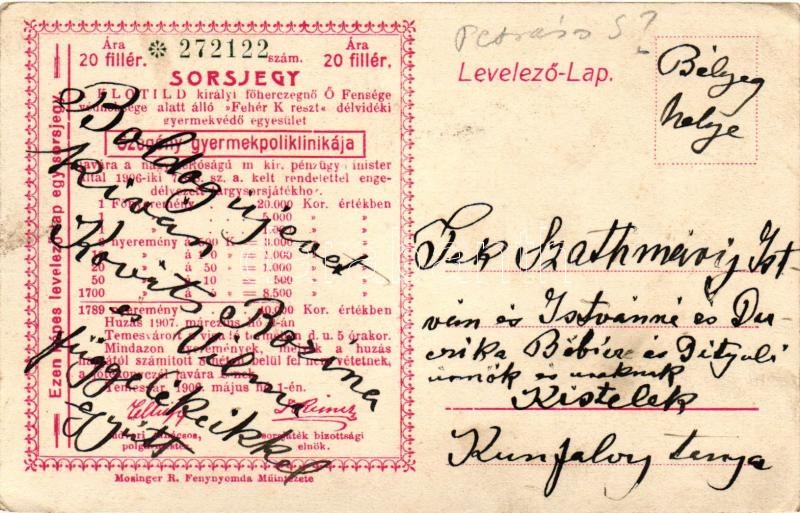 Ára
20 fillér.
272122
szám.
Ára
20 fillér.
SORSJEGY
KLOTILD királyi főherczegnő Ő Fensége
védnöksége alatt álló »Fehér K reszt« délvidéki
gyermekvédő egyesület
Szegény gyermekpoliklinikája
javára a m kir. pénzügy minister
által 1906-iki sz. a. kelt rendelettel enge-
délyezett tárgysorsjátékhoz
1 Főnyeremény 20.000 Kor. értékben
1 5.000
1
1 1.000
nyeremény á 500 K 3.000
10 á 1.000
20 á 50 1.000
50 á 10 500
1700 á 8.500
1789 nyeremény 40.000 Kor. értékben
Huzás 1907. márczius hó án
Temesvárott d. u. 5 órakor.
Mindazon nyeremények, a huzás
számított fel nem vétetnek,
javára
Temesvár, 1906. május hó 1-én.
polgármester
sorsjáték bizottsági
elnök.
Mosinger R. Fenynyomda Műintézete
Ezen képes levelező-lap egy sorsjegy
Boldog újévet
kíván
Kováts Rozina
és Vilma
függelékeikkel
együtt
Petráss S?
Levelező-Lap.
Bélyeg
helye
Tek Szathmáry Ist
ván és Istvánné és Da
rika Bébicz és
urnők és uraknak
Kistelek
Kunfalvy tanya